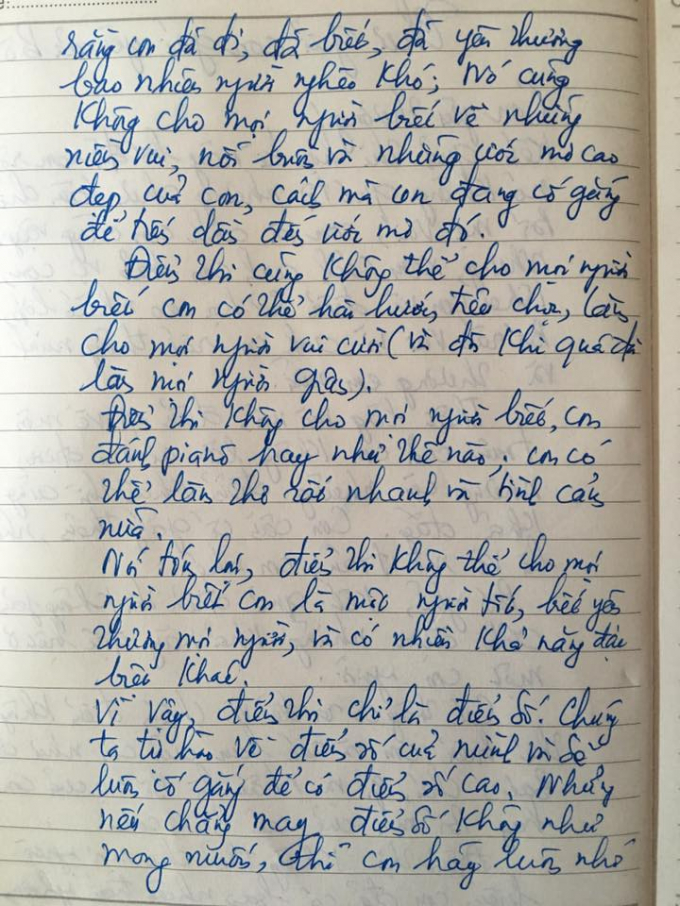 rằng con đã đi, đã biết, đã yêu thương
bao nhiêu người nghèo khó; Nó cũng
Không cho mọi người biết về những
niềm vui, nỗi buồn và những ước mơ cao
đẹp của con, cách mà con đang cố gắng
để tiến dần đến ước mơ đó.
Điểm thi cũng không thể cho mọi người
biết con có thể hài hước, trêu chọc, làm
cho mọi người vui cười (và đôi khi quá đà
làm mọi người giận).
Điểm thi không cho mọi người biết, con
đánh pianô hay như thế nào, con có
thể làm thơ rất nhanh và tình cảm
nữa.
Nói tóm lại, điểm thi không thể cho mọi
người biết con là một người tốt, biết yêu
thương mọi người, và có nhiều khả năng đặc
biệt khác.
Vì vậy, điểm thi chỉ là điểm số. Chúng
ta tự hào về điểm số của mình và sẽ
luôn cố gắng để có điểm số cao. Nhưng
nếu chẳng may điểm số không như
mong muốn, thì con hãy luôn nhớ